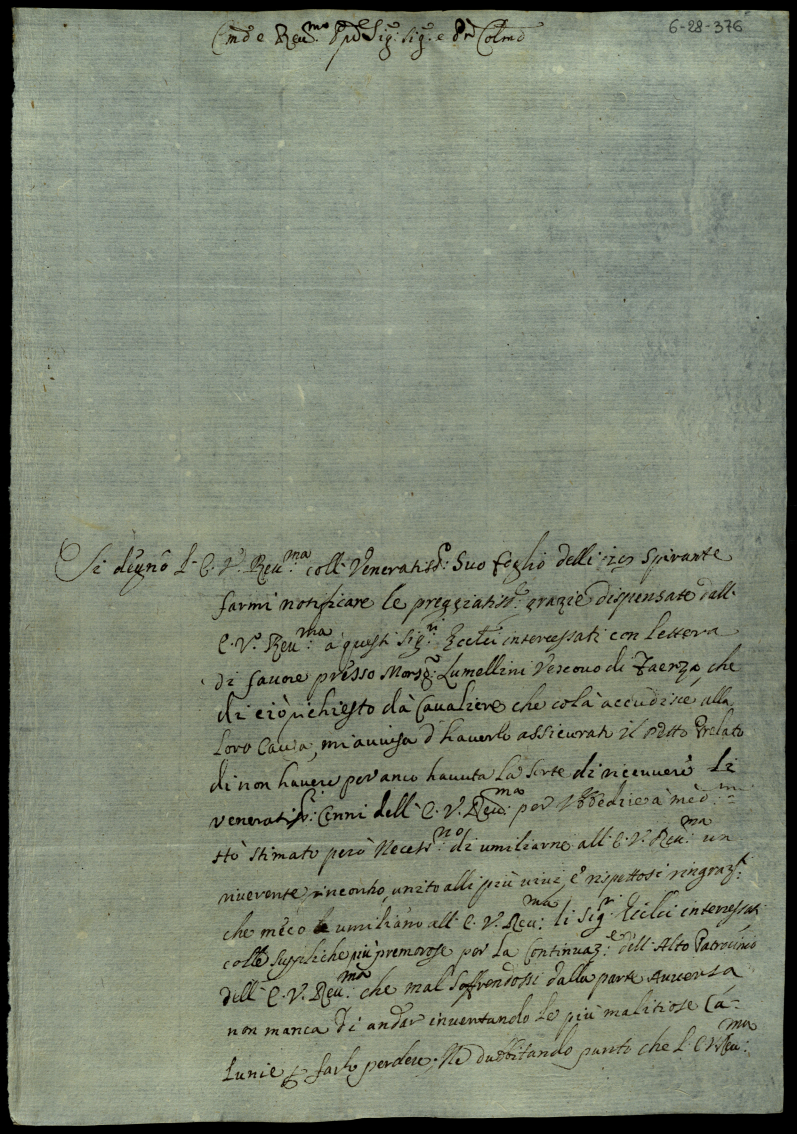 6-28-376
Em̃o e Reu.mo Sig.r Sig.r e Colmo
Si degnò l'E. V. Reu.ma coll Veneratiss.o Suo foglio delli spirante
farmi notificare le preggiatiss.e grazie dispensate dall'
E. V. Reu.ma à questi Sig.ri interessati con lettera
di fauore presso Monsg.r Lumellini Vescouo di Faenza, che
di ciò richiesto dà Caualiere che colà accudisce alla
loro Causa, mi auuisa d'hauerlo assicurato il detto Prelato
di non hauere per anco hauuta la sorte di riceuere li
veneratiss.i Cenni dell' E. V. Reu.ma per
Hò stimato però Necess.rio di umiliarne all' E. V. Reu.ma un
riuerente riscontro, unito alli più viui, e rispettosi ringraz.i
che meco umiliano all' E. V. Reu.ma li Sig.ri interessati
colle suppliche più premorose per la Continuaz.e dell' Alto Patrocinio
dell' E. V. Reu.ma che mal soffrendosi dalla parte Auuersa
non manca di andar inuentando le più malitiose Ca-
lunie farlo perdere. Ne dubbitando punto che l'E. V. Reu.ma